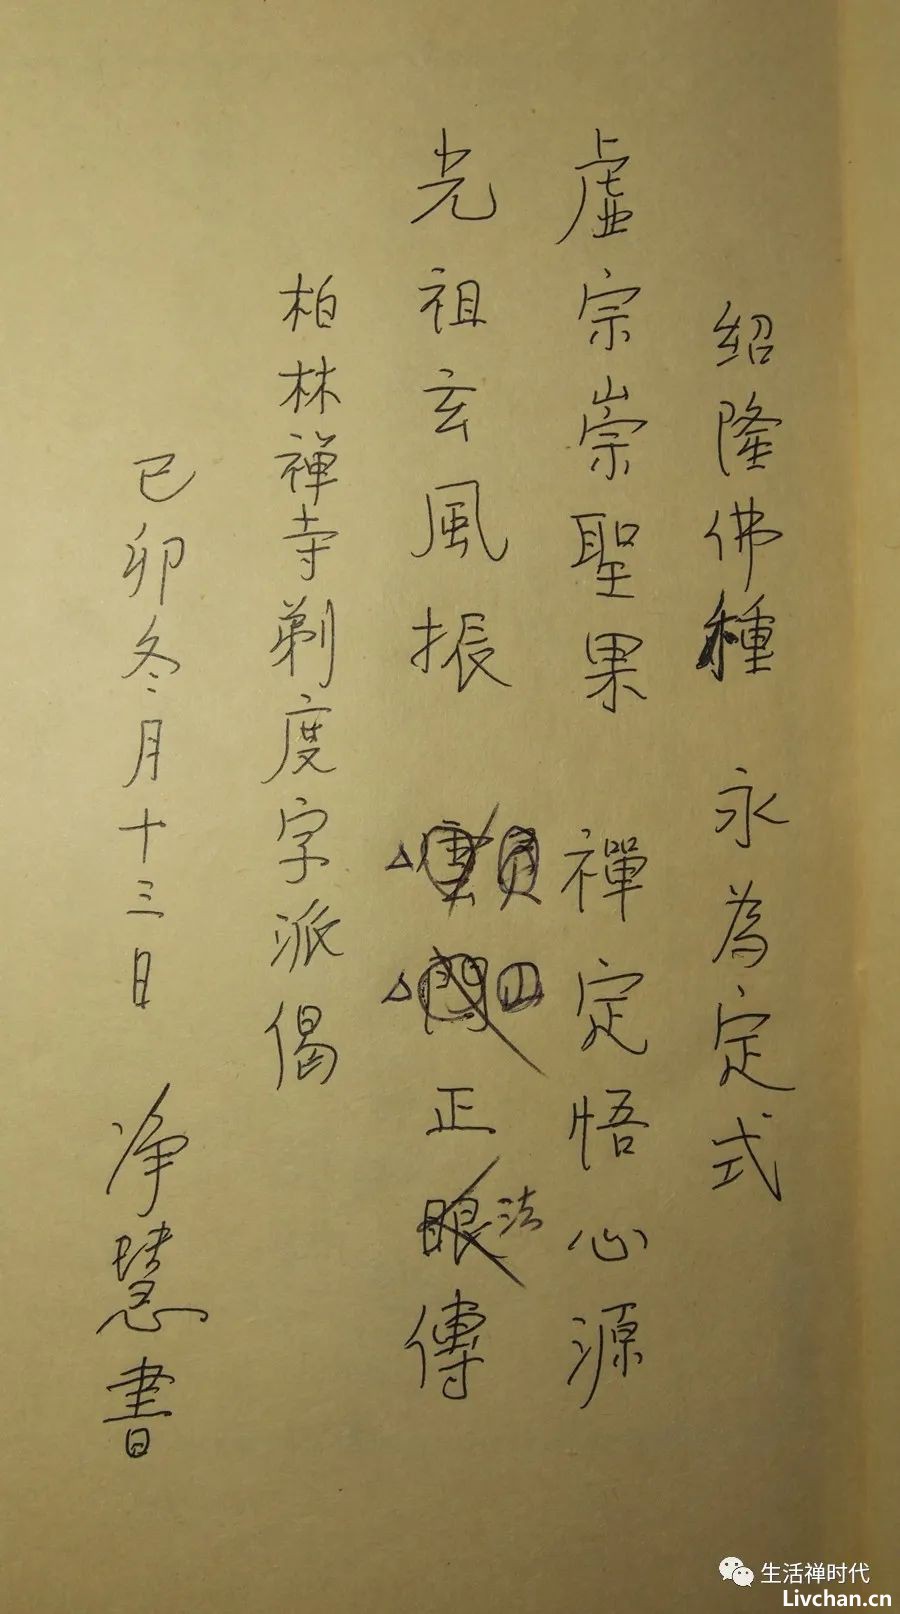 绍隆佛種 永為定式
虚宗崇聖果 禪定悟心源
光祖玄風振 雲門正眼傳
員 四
法
柏林禅寺剃度字派偈
已卯冬月十三日 净慧書
生活禅时代
Livchan.cn